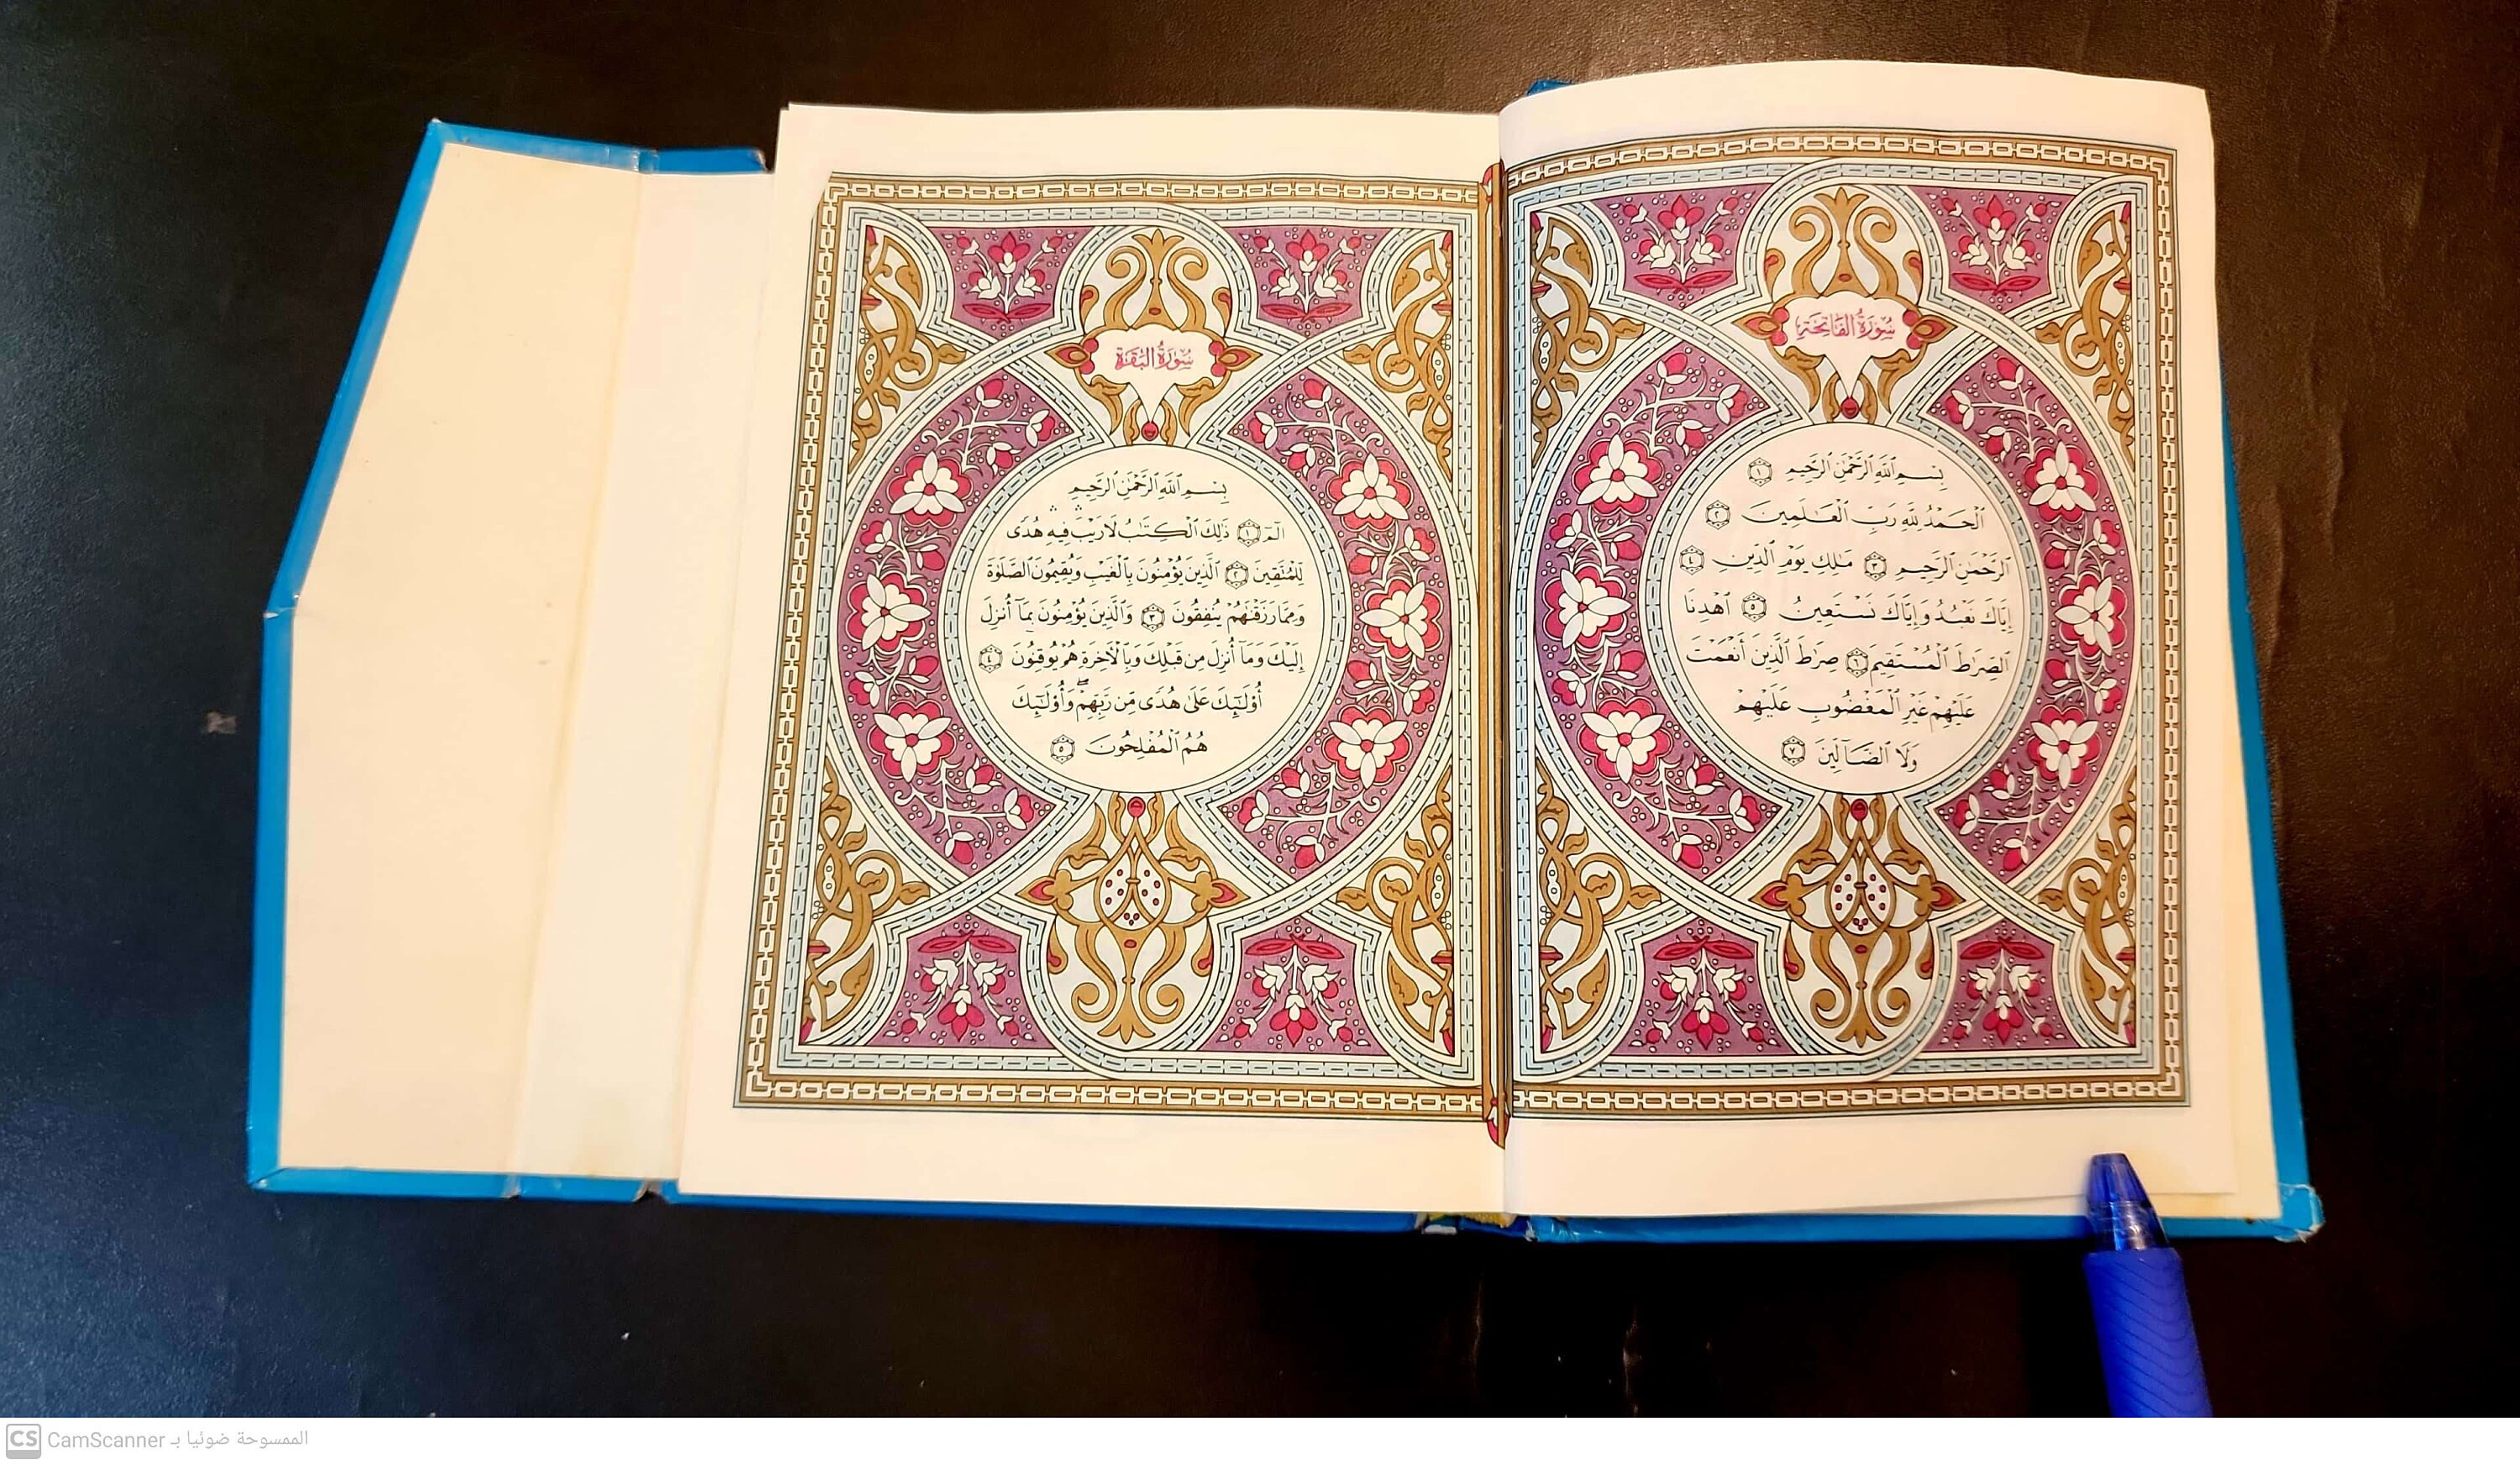 سُورَةُ الفَاتِحَةِ
بِسْمِ ٱللَّهِ ٱلرَّحْمَٰنِ ٱلرَّحِيمِ ١
ٱلْحَمْدُ لِلَّهِ رَبِّ ٱلْعَٰلَمِينَ ٢
ٱلرَّحْمَٰنِ ٱلرَّحِيمِ ٣ مَٰلِكِ يَوْمِ ٱلدِّينِ ٤
إِيَّاكَ نَعْبُدُ وَإِيَّاكَ نَسْتَعِينُ ٥ ٱهْدِنَا
ٱلصِّرَٰطَ ٱلْمُسْتَقِيمَ ٦ صِرَٰطَ ٱلَّذِينَ أَنْعَمْتَ
عَلَيْهِمْ غَيْرِ ٱلْمَغْضُوبِ عَلَيْهِمْ
وَلَا ٱلضَّآلِّينَ ٧
سُورَةُ البَقَرَةِ
بِسْمِ ٱللَّهِ ٱلرَّحْمَٰنِ ٱلرَّحِيمِ
الٓمٓ ١ ذَٰلِكَ ٱلْكِتَٰبُ لَا رَيْبَ ۛ فِيهِ ۛ هُدًى
لِّلْمُتَّقِينَ ٢ ٱلَّذِينَ يُؤْمِنُونَ بِٱلْغَيْبِ وَيُقِيمُونَ ٱلصَّلَوٰةَ
وَمِمَّا رَزَقْنَٰهُمْ يُنفِقُونَ ٣ وَٱلَّذِينَ يُؤْمِنُونَ بِمَآ أُنزِلَ
إِلَيْكَ وَمَآ أُنزِلَ مِن قَبْلِكَ وَبِٱلْءَاخِرَةِ هُمْ يُوقِنُونَ ٤
أُو۟لَٰٓئِكَ عَلَىٰ هُدًى مِّن رَّبِّهِمْ ۖ وَأُو۟لَٰٓئِكَ
هُمُ ٱلْمُفْلِحُونَ ٥
CS CamScanner الممسوحة ضوئيا بـ